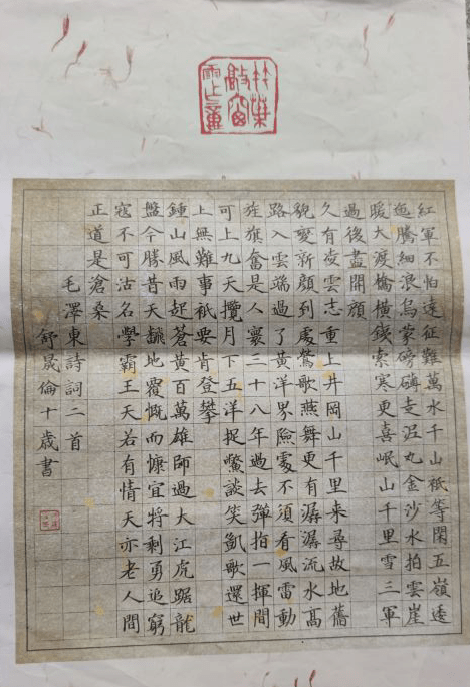 竹葉
敲窗
紅軍不怕遠征難萬水千山祗等閑五嶺逶
迤騰細浪烏蒙磅礴走泥丸金沙水拍雲崖
暖大渡橋橫鐵索寒更喜岷山千里雪三軍
過後盡開顏
久有凌雲志重上井岡山千里來尋故地舊
貌變新顏到處鶯歌燕舞更有潺潺流水高
路入雲端過了黃洋界險處不須看風雷動
旌旗奮是人寰三十八年過去彈指一揮間
可上九天攬月下五洋捉鱉談笑凱歌還世
上無難事祇要肯登攀
鍾山風雨起蒼黃百萬雄師過大江虎踞龍
盤今勝昔天飜地覆慨而慷宜將剩勇追窮
寇不可沽名學霸王天若有情天亦老人間
正道是滄桑
毛澤東詩詞二首
舒晟倫十歲書